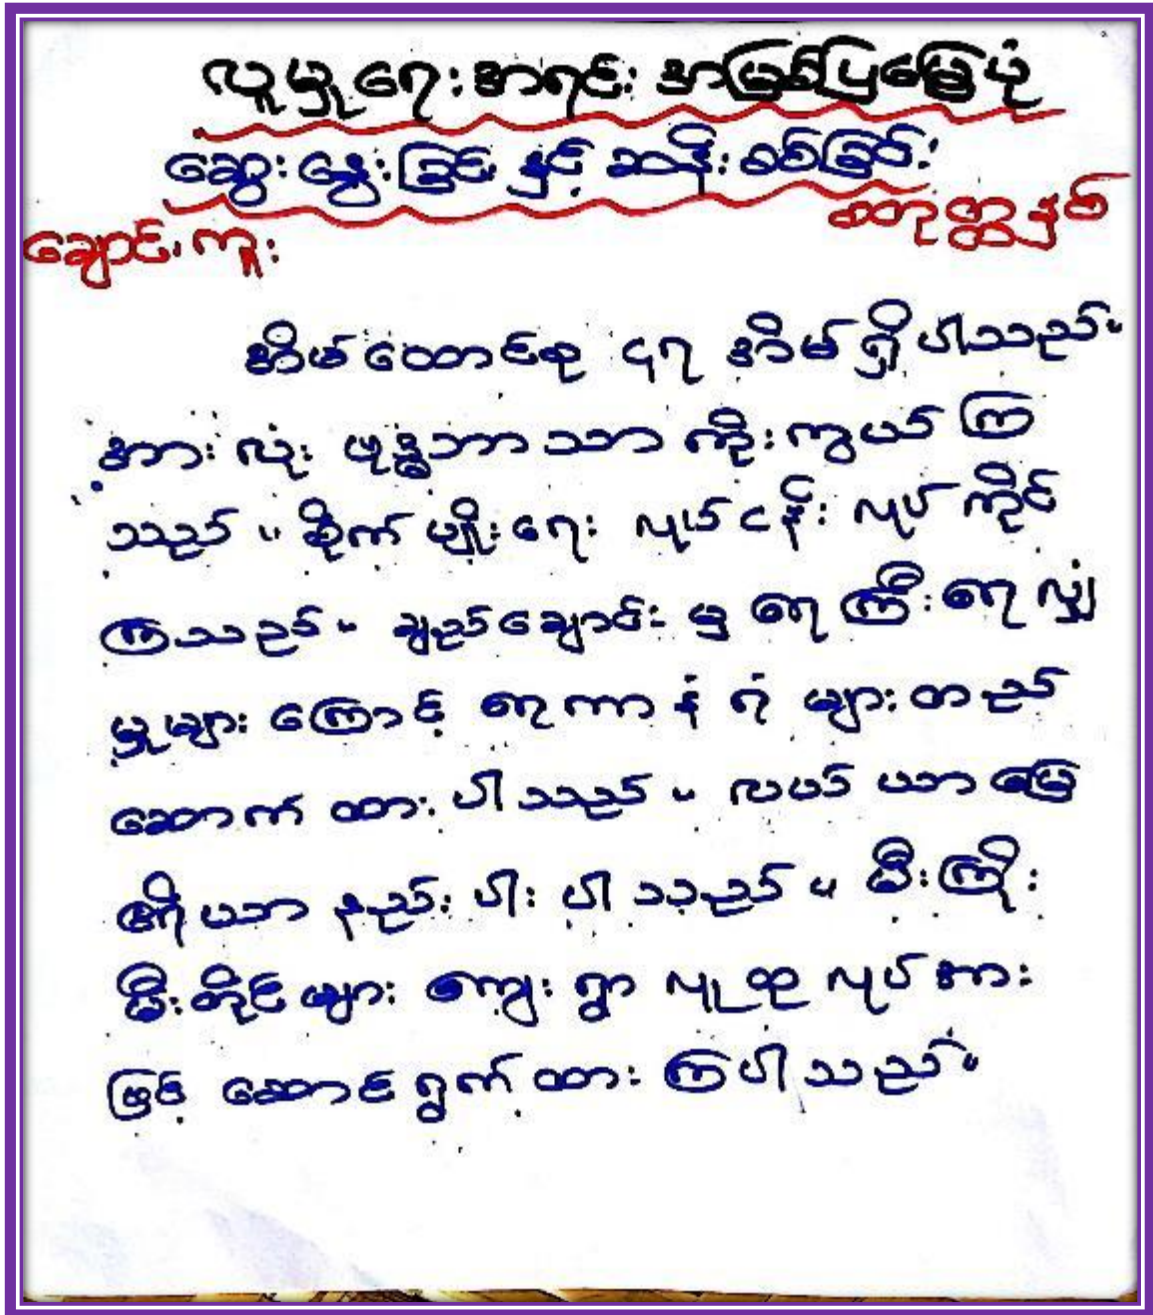 လူမှုရေးအရင်းအမြစ်ပြမြေပုံ
ဆွေးနွေးခြင်းနှင့် ဆန်းစစ်ခြင်း
စတုတ္ထနှစ်
ချောင်းကူး
အိမ်ထောင်စု ၄၇ အိမ်ရှိပါသည်။
အားလုံး ဗုဒ္ဓဘာသာ ကိုးကွယ်ကြ
သည်။ စိုက်မျိုးရေး လုပ်ငန်း လုပ်ကိုင်
ကြသည်။ ချည်ချောင်းမှ ရေကြီးရေလျှံ
မှုများကြောင့် ရေကာနံရံများတည်
ဆောက်ထားပါသည်။ လယ်ယာမြေ
ဧရိယာ နည်းပါးပါသည်။ မီးကြိုး
မီးတိုင်များ ကျေးရွာ လူထုလုပ်အား
ဖြင့် ဆောင်ရွက်ထားကြပါသည်။